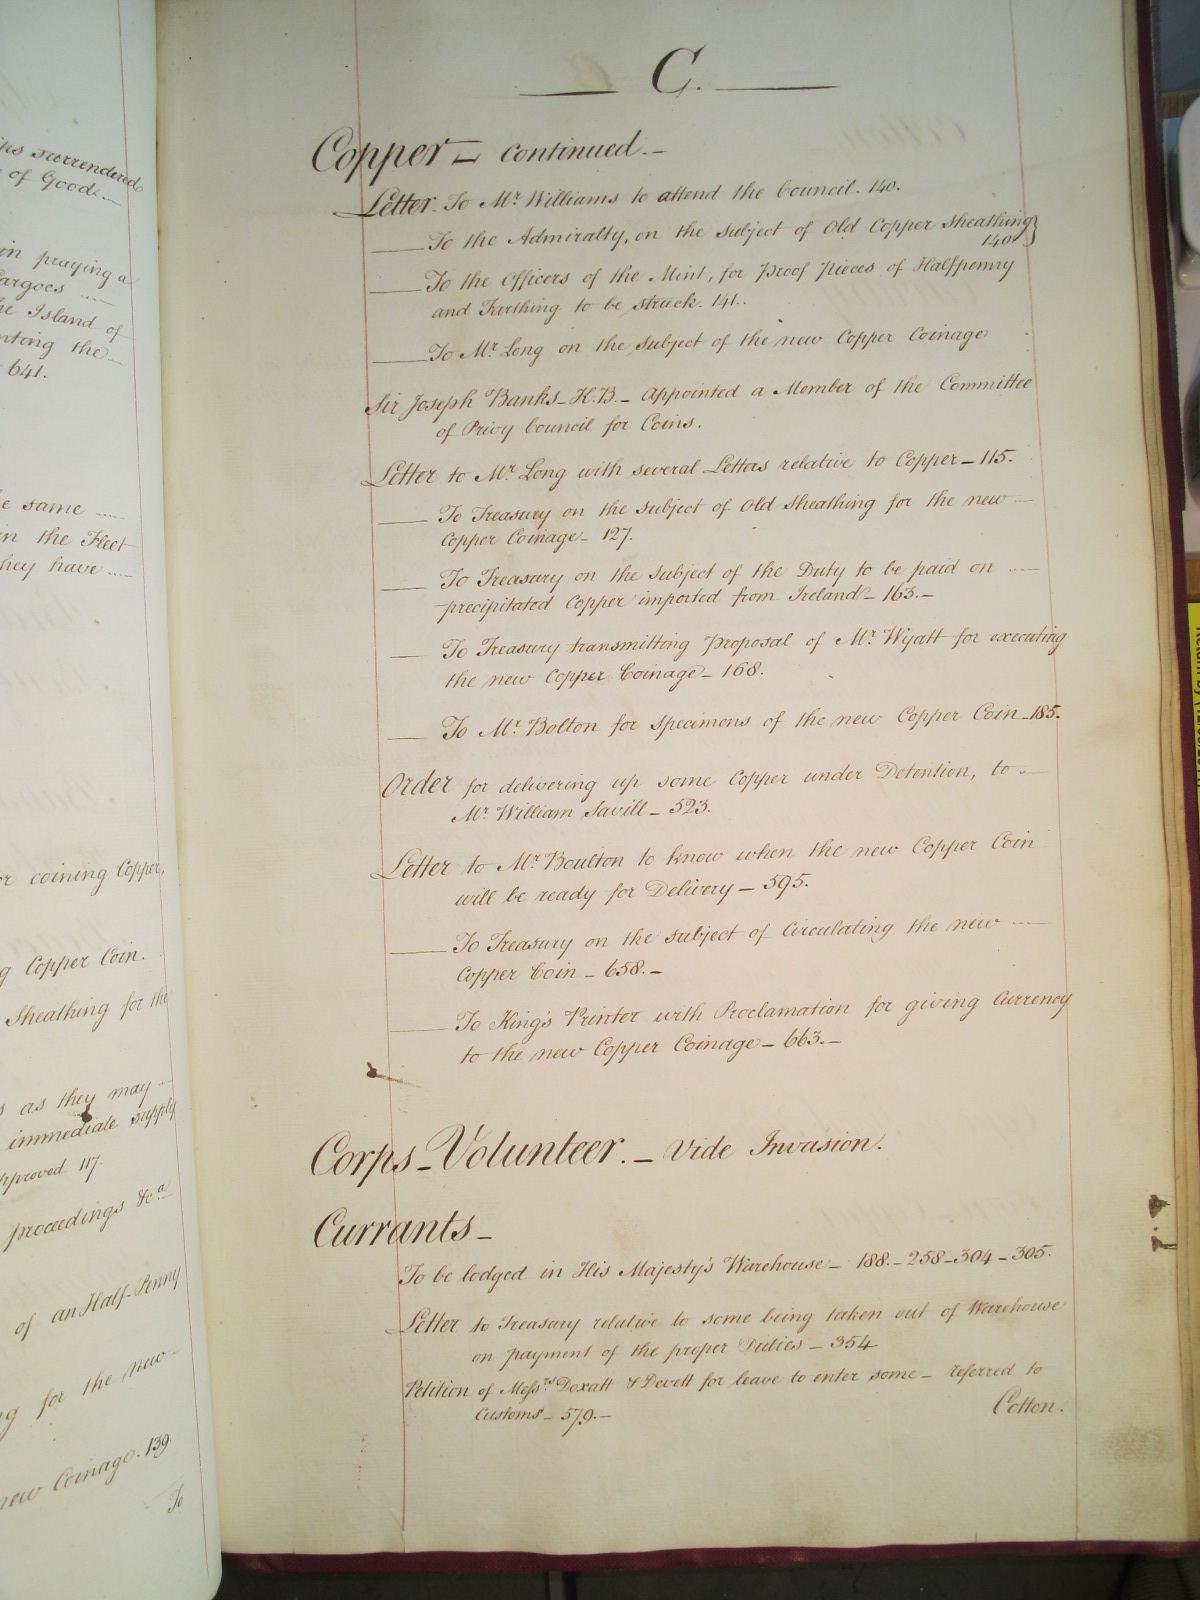 ps surrendered
of Goods
in praying a
argoes
he Island of
nting the
641.
e same
in the Fleet
hey have
or coining Copper,
g Copper Coin.
Sheathing for the
s as they may
immediate supply
pproved 117.
proceedings &c.a
of an Half-Penny
g for the new
new Coinage. 139
To
C.
Copper - continued. -
Letter. To Mr. Williams to attend the Council. 140.
To the Admiralty, on the subject of Old Copper Sheathing
140
To the Officers of the Mint, for Proof Pieces of Halfpenny
and Farthing to be struck. 141..
To Mr. Long on the subject of the new Copper Coinage
Sir Joseph Banks - K.B. - Appointed a Member of the Committee
of Privy Council for Coins.
Letter to Mr. Long with several Letters relative to Copper - 115.
To Treasury on the subject of Old Sheathing for the new
Copper Coinage - 127.
To Treasury on the subject of the Duty to be paid on
precipitated Copper imported from Ireland - 163. -
To Treasury transmitting Proposal of Mr. Wyatt for executing
the new Copper Coinage - 168.
To Mr. Bolton for specimens of the new Copper Coin - 185.
Order for delivering up some Copper under Detention, to
Mr. William Savill - 523.
Letter to Mr. Boulton to know when the new Copper Coin
will be ready for Delivery - 595.
To Treasury on the subject of Circulating the new
Copper Coin - 658. -
To King's Printer with Proclamation for giving Currency
to the new Copper Coinage - 663. -
Corps - Volunteer. - Vide Invasion.
Currants -
To be lodged in His Majesty's Warehouse - 188. - 258 - 304 - 305.
Letter to Treasury relative to some being taken out of Warehouse
on payment of the proper Duties - 354
Petition of Messrs. Doxatt & Devett for leave to enter some - referred to
Customs - 579. -
Cotton.